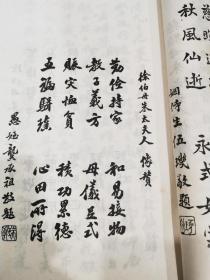 秋風仙逝
永式
生伍爕敬題
徐伯母朱太夫人像贊
勤儉持家 和易接物
教子義方 母儀足式
賑灾恤貧 積功累德
五福駢臻 心田所得
愚姪龔承祖敬題